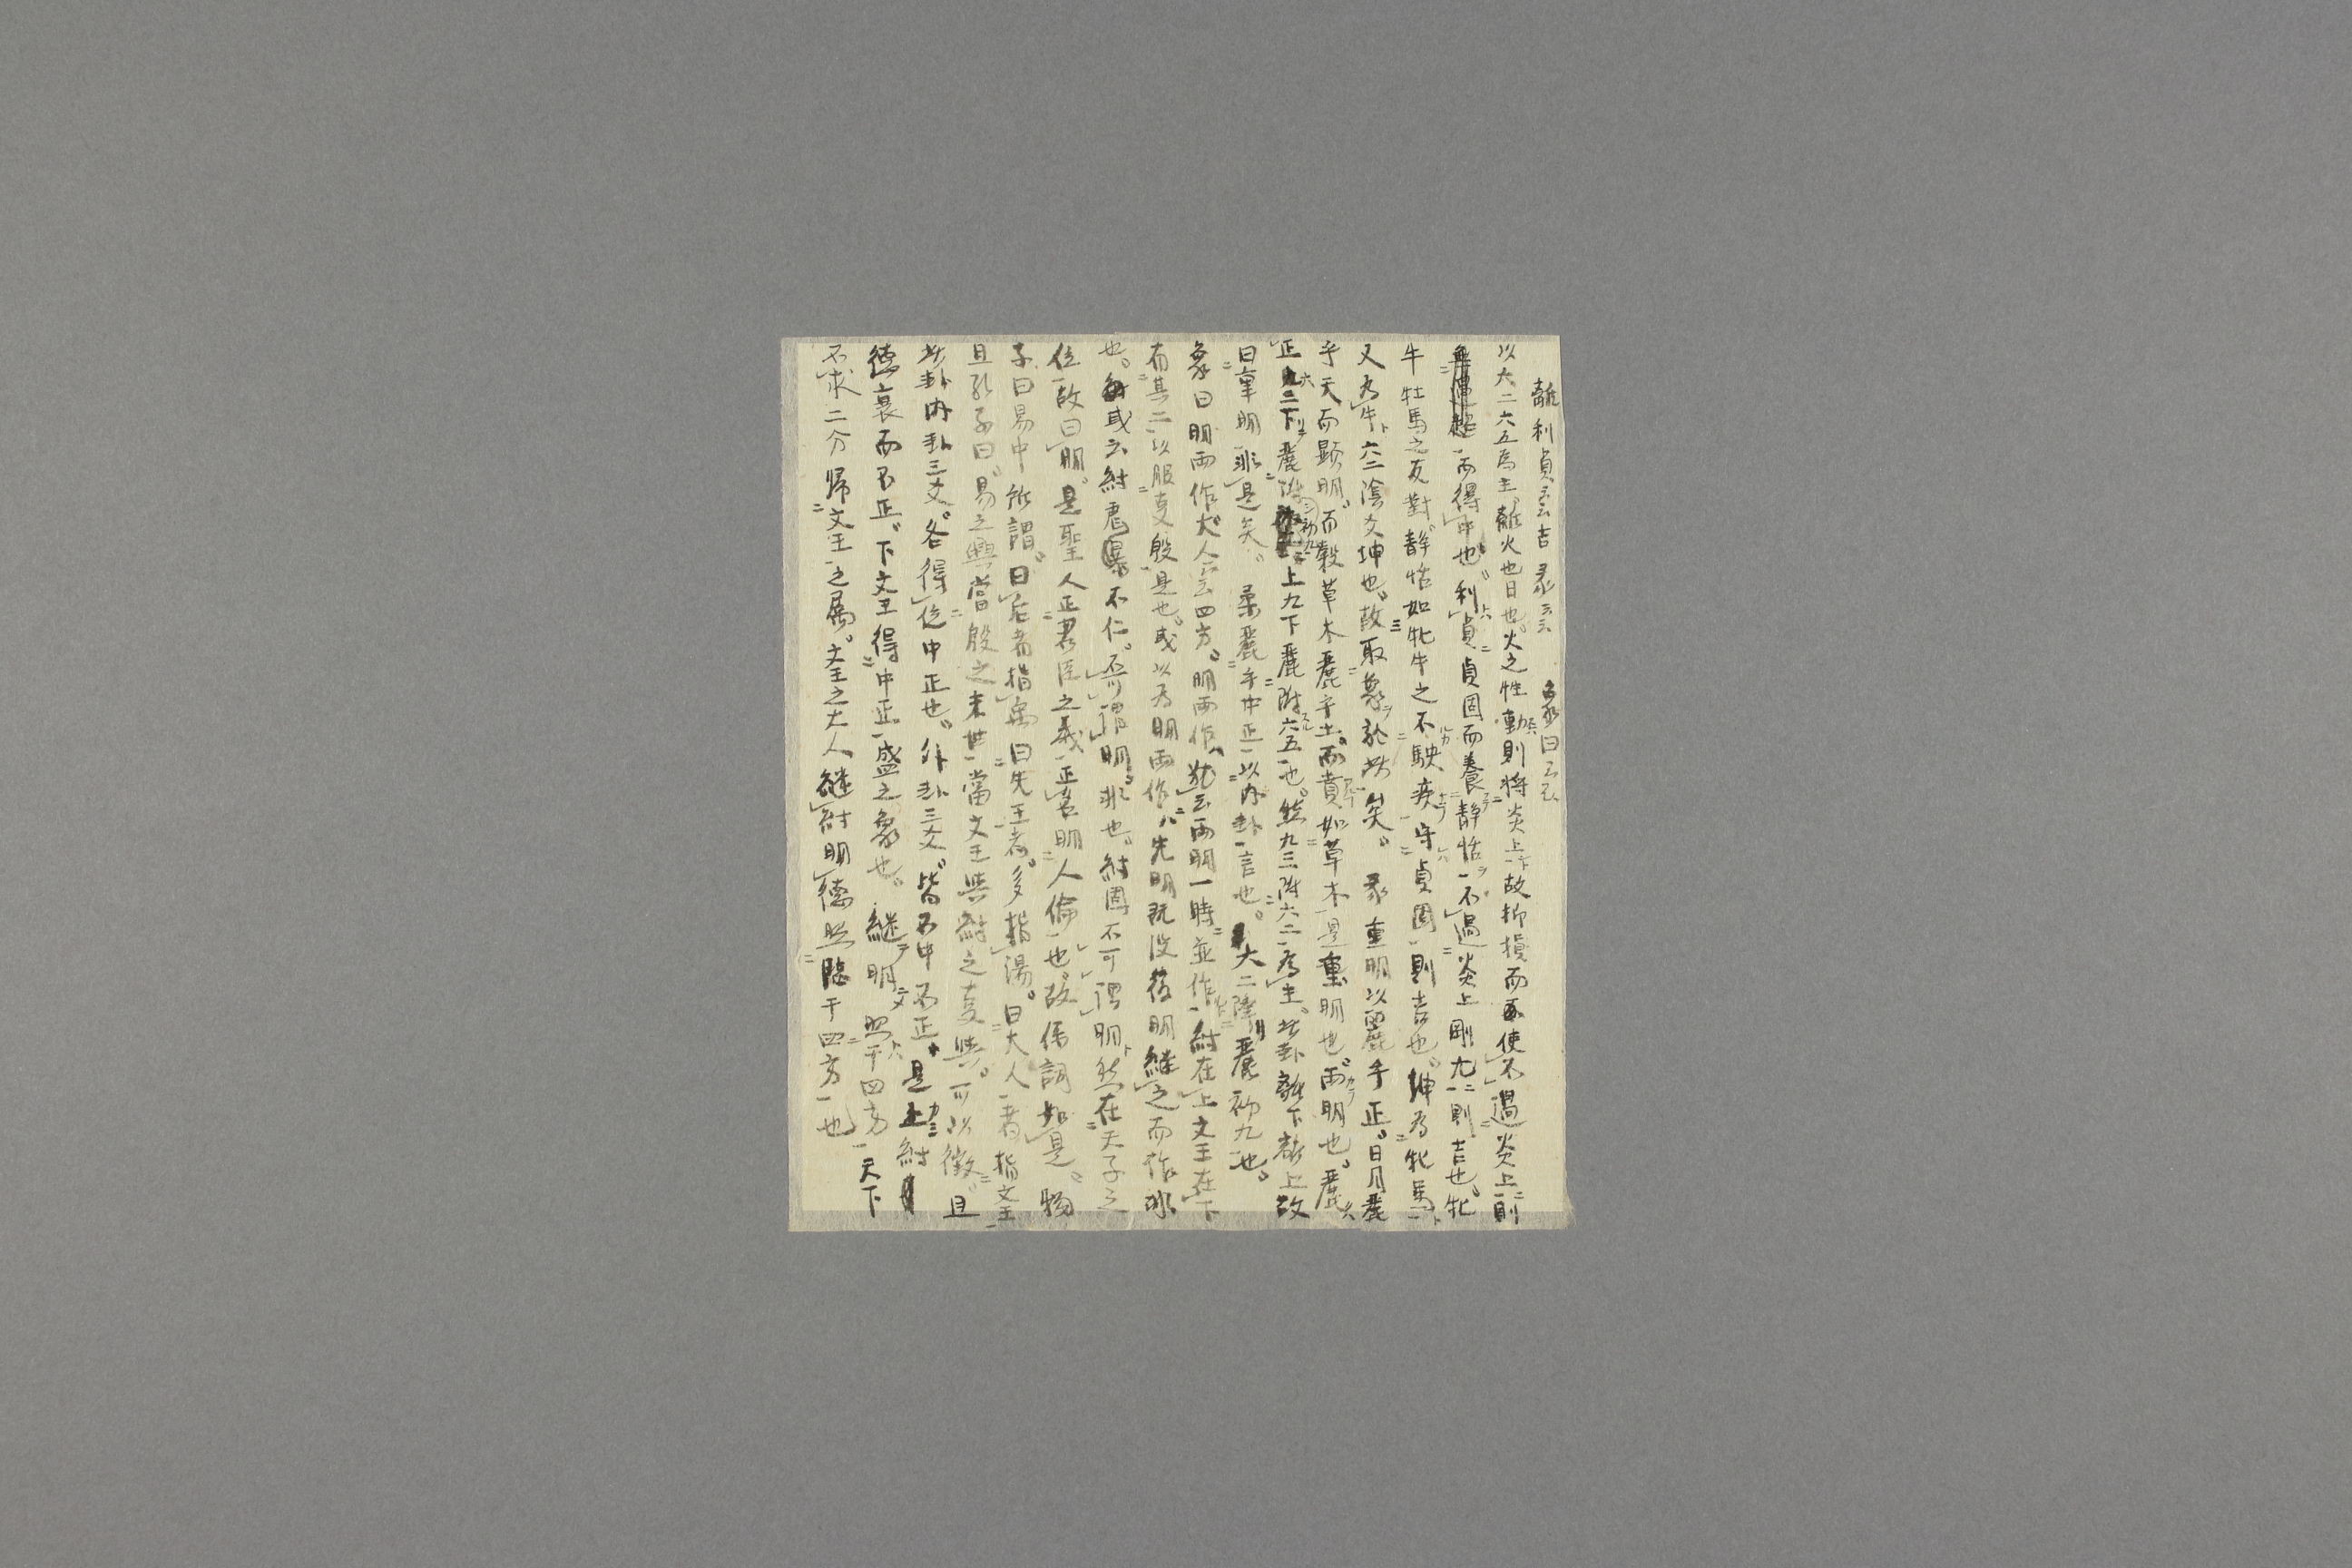 離利貞云云吉 彖云云 象曰云云
以六二六五爲主、離火也日也。火之性動則將炎上、故抑損而使不過炎上則
而得中也。利貞貞固而養静恬不過炎上剛九二則吉也。牝
牛牡馬之反對、静恬如牝牛之不駛疾守貞固則吉也。坤為牝馬
又為牛六二陰爻坤也。故取象於此矣。 彖重明以麗乎正。日月麗
乎天而顕明。而穀草木麗乎土。而賁如草木是重明也。両明也。麗
正六二下麗附初九上九下麗附六五也。然九三附六二為主。此卦離下離上故
曰重明是矣。 柔麗乎中正以内卦言也。六二麗初九也。
象曰明両作大人云云四方。明両作、猶云両明一時並作紂在上文王在下
有其二以服事殷是也。或以為明両作、先明既没後明継之而作非
也。或云紂虐暴不仁。不可謂明。非也。紂固不可謂明然在天子之
位故曰明。是聖人正君臣之義正明人倫也。故係詞如是。物
子曰易中所謂。曰后者指禹曰先王者。多指湯。曰大人者指文王
且孔子曰、易之興當殷之末世當文王與紂之事與。可以徴。且
此卦内卦三爻。各得位中正也。外卦三爻。皆不中不正。是上紂
徳衰而不正。下文王得中正盛之象也。 継明照于四方天下
不求二分歸文王之属。文王之大人継紂明徳照臨于四方也